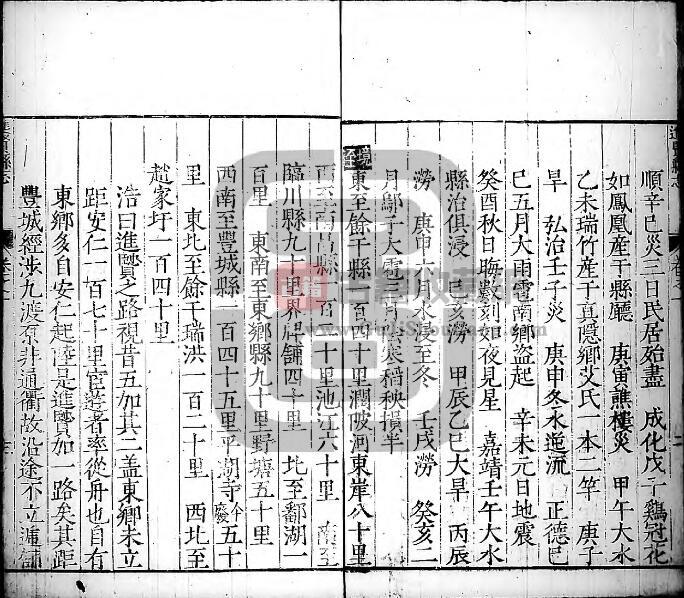 順辛巳災三日民居始盡 成化戊子鷄冠花
如鳳凰產于縣廳 庚寅譙樓災 甲午大水
乙未瑞竹產于真隱鄉艾氏一本二竿 庚子
旱 弘治壬子災 庚申冬水逆流 正德己
巳五月大雨雹南鄉盜起 辛未元日地震
癸酉秋日晦數刻如夜見星 嘉靖壬午大水
縣治俱浸 己亥澇 甲辰乙巳大旱 丙辰
澇 庚申六月水浸至冬 壬戌澇 癸亥二
月鄔子大雹三月 稻秧損半
境至 東至餘干縣一百四十里瀾陂河東岸八十里
西至南昌縣一百 十里池江六十里 南至
臨川縣九十里界牌舖四十里 北至鄱湖一
百里 東南至東鄉縣九十里野塘五十里
西南至豐城縣一百四十五里平湖寺今廢五十
里 東北至餘干瑞洪一百二十里 西北至
趙家圩一百四十里
浩曰進賢之路視昔五加其二盖東鄉未立
距安仁一百七十里宦遊者率從舟也自有
東鄉多自安仁起陸是進賢加一路矣其距
豐城經涉九渡 井通衢故沿途不立 舖
進賢縣志
卷之一
二